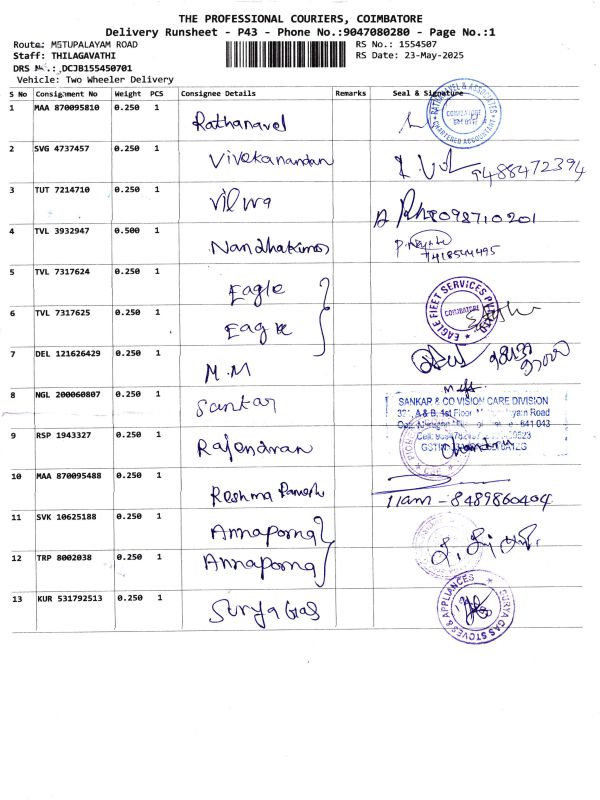 THE PROFESSIONAL COURIERS, COIMBATORE
Delivery Runsheet - P43 - Phone No.:9047080280 - Page No.:1
Route: METUPALAYAM ROAD
RS No.: 1554507
Staff: THILAGAVATHI
RS Date: 23-May-2025
DRS No.: DCJB155450701
Vehicle: Two Wheeler Delivery
S No Consignment No Weight PCS Consignee Details Remarks Seal & Signature
1 MAA 870095810 0.250 1 Rathanavel
RATHANAVEL & ASSOCIATES COIMBATORE CHARTERED ACCOUNTANT
2 SVG 4737457 0.250 1 Vivekanandan 9488472394
3 TUT 7214710 0.250 1 Vilwa 8098710201
4 TVL 3932947 0.500 1 Nandhakumar
5 TVL 7317624 0.250 1 Eagle
EAGLE FLEET SERVICES PVT LTD COIMBATORE
6 TVL 7317625 0.250 1 Eagle
7 DEL 121626429 0.250 1 M.M
8 NGL 200060807 0.250 1 Sankar
SANKAR & CO VISION CARE DIVISION
A & B, 1st Floor Road
641 043
Cell:
GSTIN
9 RSP 1943327 0.250 1 Rajendran
10 MAA 870095488 0.250 1 Reshma Ramesh
11am - 8489860404
11 SVK 10625188 0.250 1 Annaporna
12 TRP 8002038 0.250 1 Annaporna
13 KUR 531792513 0.250 1 Surya Gas
SURYA GAS STOVES & APPLIANCES